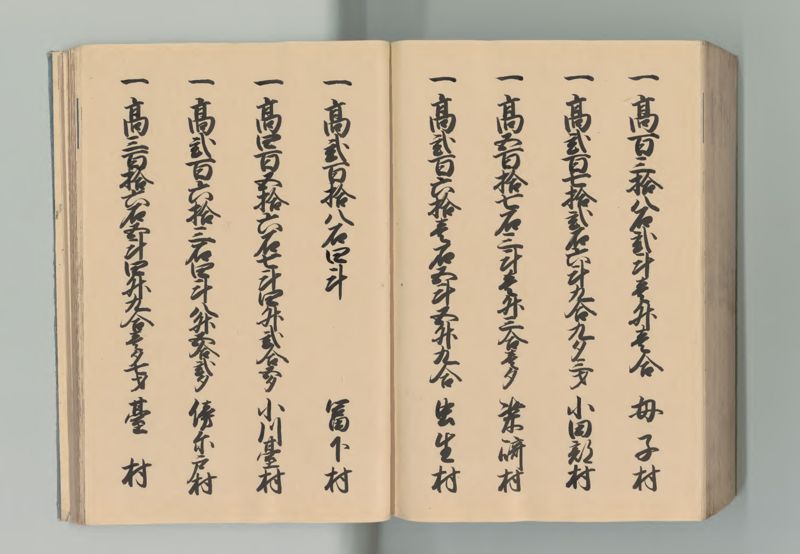 一高百三拾八石弐斗壱升壱合 毋子村
一高弐百七拾弐石六斗九合九夕三才 小田部村
一高五百拾七石三斗壱升三合壱夕 柴崎村
一高弐百六拾壱石五斗五升九合 出生村
一高弐百拾八石四斗 冨下村
一高四百五拾六石七斗四升弐合壱夕 小川臺村
一高弐百六拾三石四斗八升五合弐夕 傍尓戸村
一高三百拾六石五斗四升九合壱夕七才 臺村